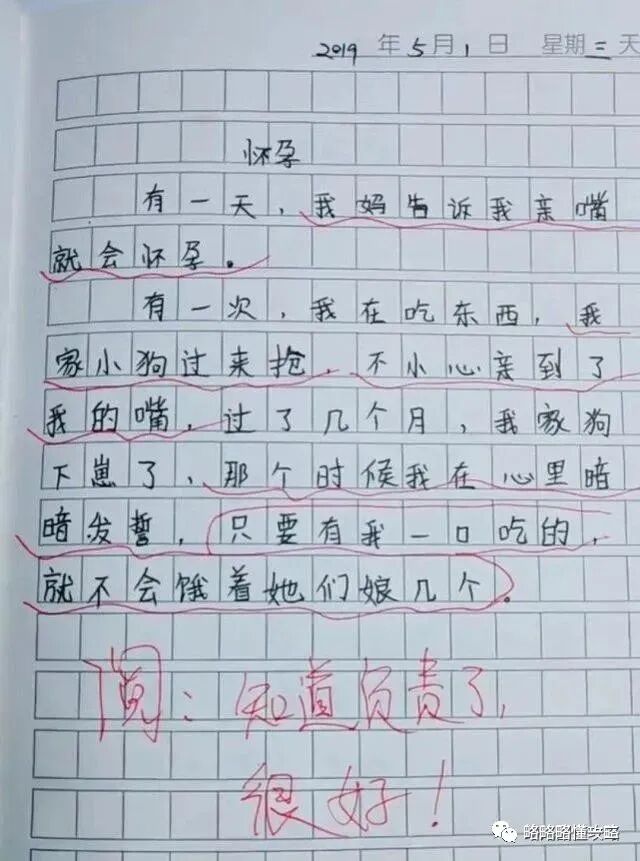 2019 年 5 月 1 日 星期三 天
怀孕
有一天，我妈告诉我亲嘴
就会怀孕。
有一次，我在吃东西，我
家小狗过来抢，不小心亲到了
我的嘴，过了几个月，我家狗
下崽了，那个时候我在心里暗
暗发誓，只要有我一口吃的，
就不会饿着她们娘几个。
阅：知道负责了，
很好！
略略略懂攻略